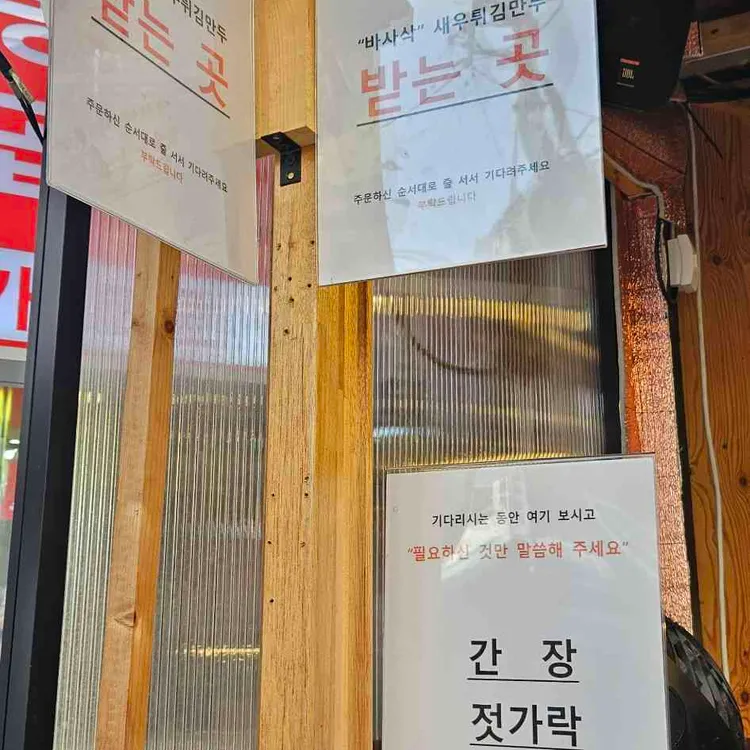 새우튀김만두
받는 곳
주문하신 순서대로 줄 서서 기다려주세요
부탁드립니다
"바사삭" 새우튀김만두
받는 곳
주문하신 순서대로 줄 서서 기다려주세요
부탁드립니다
JBL
기다리시는 동안 여기 보시고
"필요하신 것만 말씀해 주세요"
간 장
젓가락